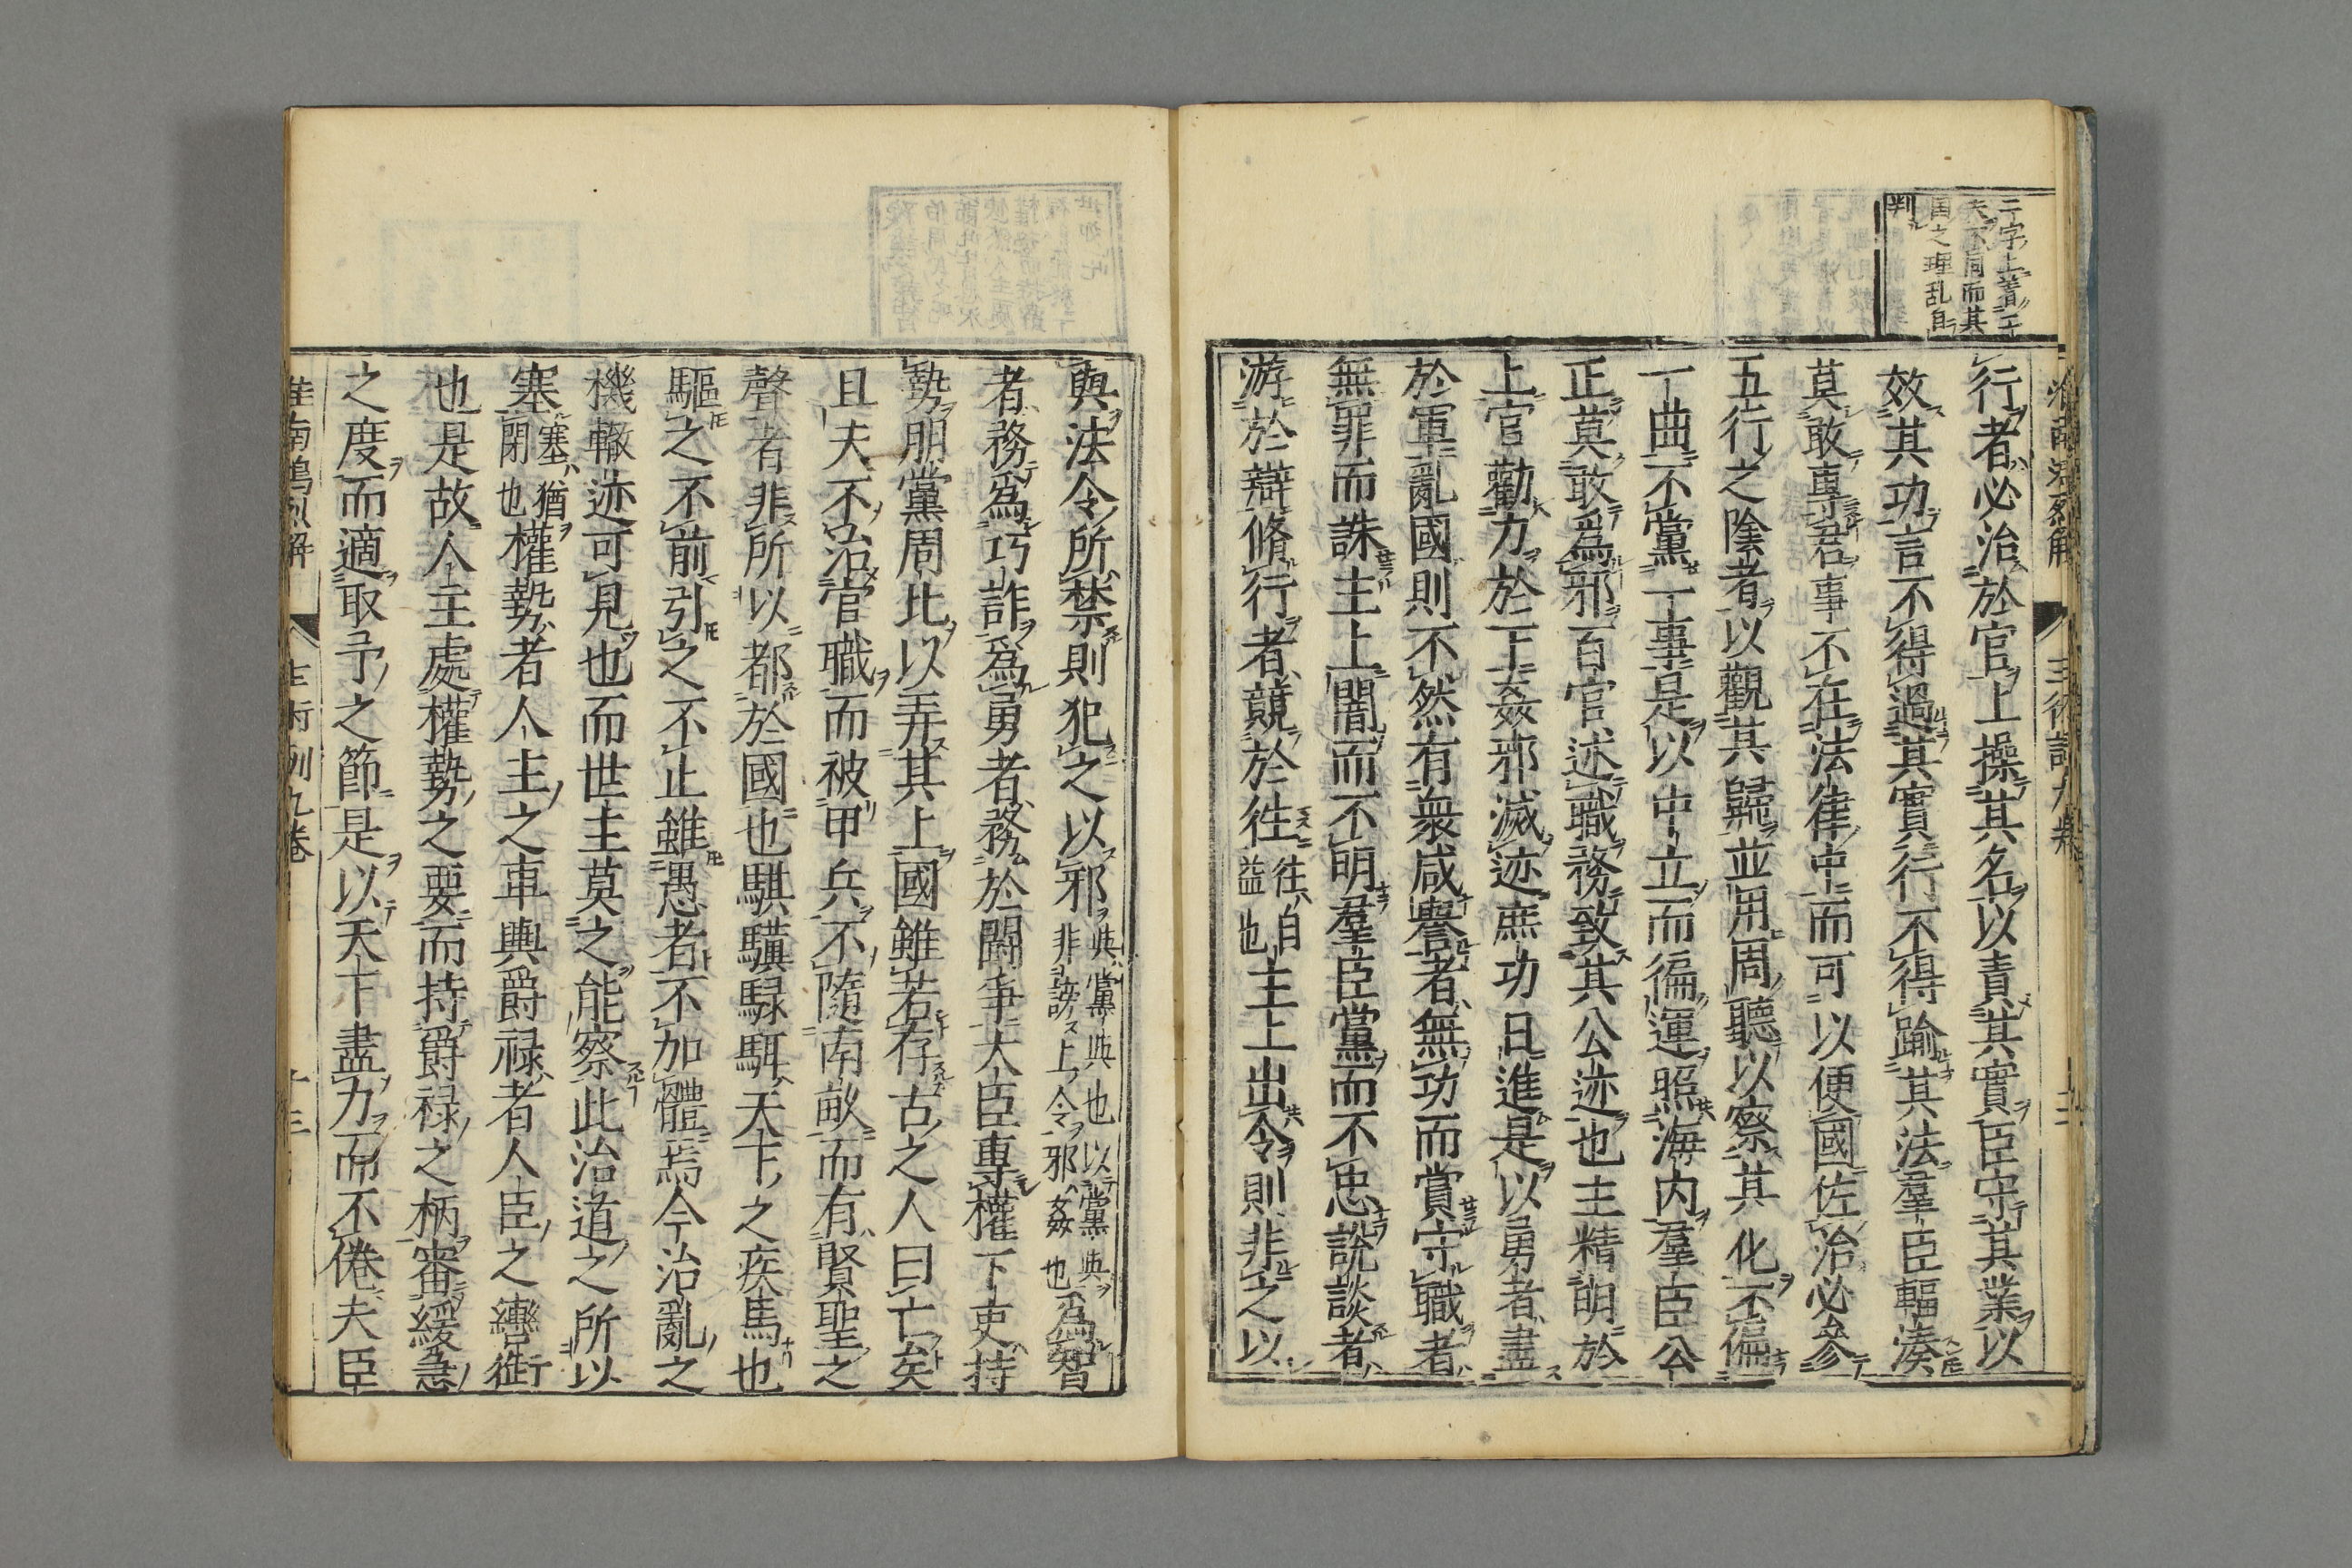 二字上著二
夫不同而其
国之理乱自
判
行者必治於官上操其名以責其實臣守其業以
效其功言不得過其實行不得踰其法羣臣輻湊
莫敢專君事不在法律中而可以便國佐治必參
五行之陰者以觀其歸並用周聽以察其化不偏
一曲不黨一事是以中立而徧運照海内羣臣公
正莫敢爲邪百官述職務致其公迹也主精明於
上官勸力於下姦邪滅迹庶功日進是以勇者盡
於軍亂國則不然有衆咸譽者無功而賞守職者
無罪而誅主上闇而不明羣臣黨而不忠說談者
游於辯脩行者競於往
往自
益也
主上出令則非之以
與法令所禁則犯之以邪
非謗上令邪姦也
爲智
者務爲巧詐爲勇者務於鬪爭大臣專權下吏持
勢朋黨周比以弄其上國雖若存古之人曰亡矣
且夫不治官職而被甲兵不隨南畝而有賢聖之
聲者非所以都於國也騏驥騄駬天下之疾馬也
驅之不前引之不止雖愚者不加體焉今治亂之
機轍迹可見也而世主莫之能察此治道之所以
塞
塞猶
閉也
權勢者人主之車輿爵祿者人臣之轡銜
也是故人主處權勢之要而持爵祿之柄審緩急
之度而適取予之節是以天下盡力而不倦夫臣
淮南鴻烈解
主術訓九卷
十三